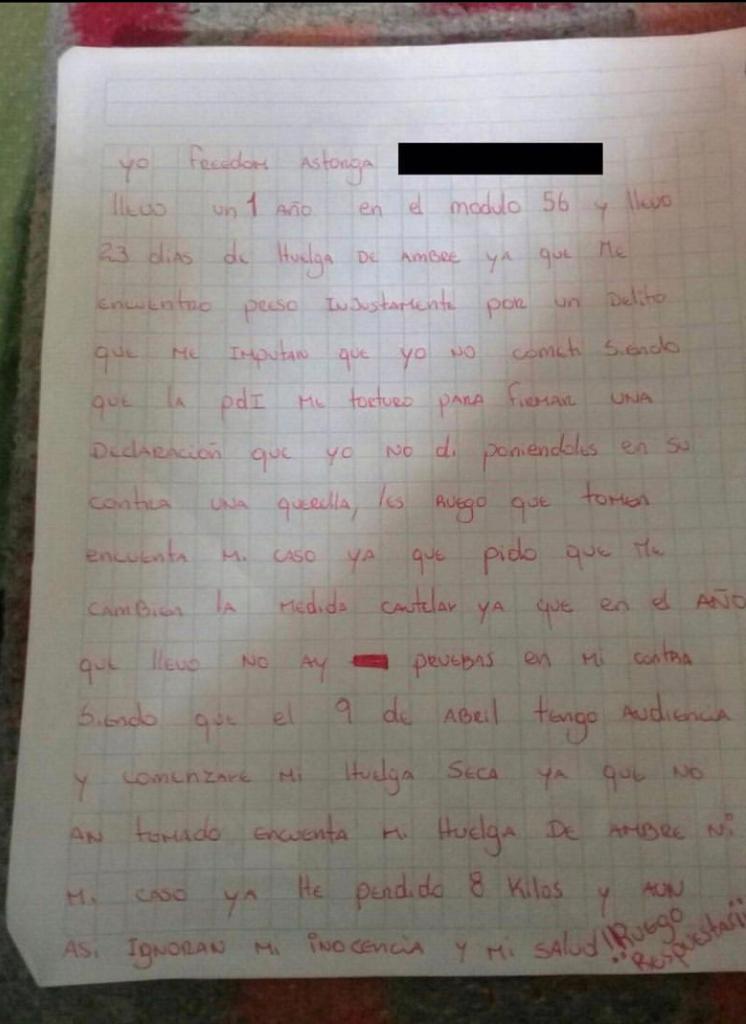 yo Freedom Astorga
llevo un 1 Año en el modulo 56 y llevo
23 dias de Huelga DE AMBRE ya que Me
encuentro preso InJustamente por un Delito
que Me IMputan que yo NO cometi Siendo
que la pdI Me torturo PARA firmar UNA
Declaración que yo NO di poniendoles en su
contra UNA querella, les Ruego que tomen
encuenta Mi CASO YA que pido que Me
CAMBien la Medida Cautelar YA que en el AÑO
que llevo NO AY PRUEBAS en Mi contra
Siendo que el 9 de ABRil tengo AUDIENCIA
y comenzare Mi Huelga SECA YA que NO
AN tomado encuenta Mi Huelga DE AMBRE Ni
Mi CASO YA He perdido 8 Kilos y AUN
ASi IGNORAN Mi iNocencia y Mi SALUD!!
RUEGO
RESPUESTA!!